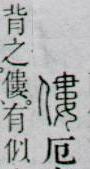 僂厄
背之僂。有似